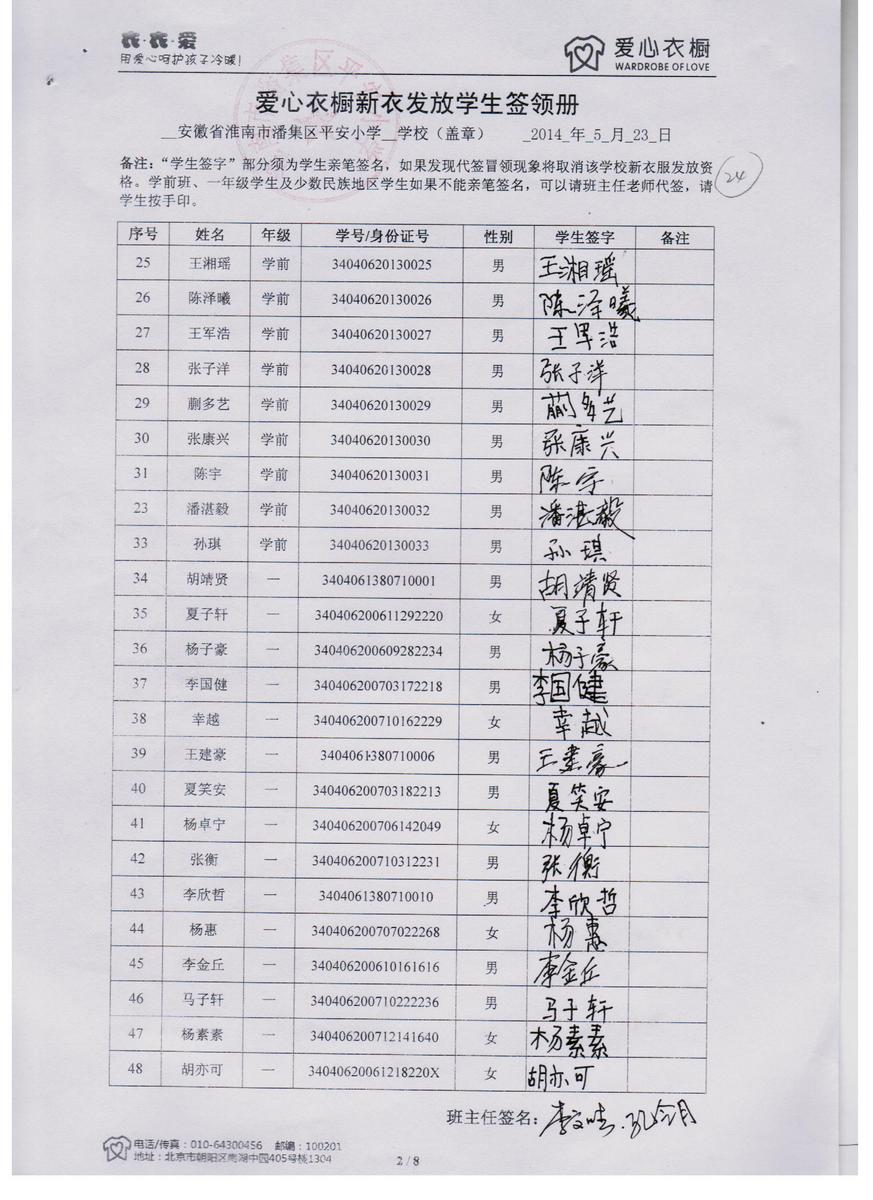 衣·衣·爱
用爱心呵护孩子冷暖!
爱心衣橱
WARDROBE OF LOVE
爱心衣橱新衣发放学生签领册
__安徽省淮南市潘集区平安小学__学校（盖章） _2014_年_5_月_23_日
备注：“学生签字”部分须为学生亲笔签名，如果发现代签冒领现象将取消该学校新衣服发放资
格。学前班、一年级学生及少数民族地区学生如果不能亲笔签名，可以请班主任老师代签，请
学生按手印。
24
序号 姓名 年级 学号/身份证号 性别 学生签字 备注
25 王湘瑶 学前 34040620130025 男 王湘瑶
26 陈泽曦 学前 34040620130026 男 陈泽曦
27 王军浩 学前 34040620130027 男 王军浩
28 张子洋 学前 34040620130028 男 张子洋
29 蒯多艺 学前 34040620130029 男 蒯多艺
30 张康兴 学前 34040620130030 男 张康兴
31 陈宇 学前 34040620130031 男 陈宇
23 潘湛毅 学前 34040620130032 男 潘湛毅
33 孙琪 学前 34040620130033 男 孙琪
34 胡靖贤 一 3404061380710001 男 胡靖贤
35 夏子轩 一 340406200611292220 女 夏子轩
36 杨子豪 一 340406200609282234 男 杨子豪
37 李国健 一 340406200703172218 男 李国健
38 幸越 一 340406200710162229 女 幸越
39 王建豪 一 3404061380710006 男 王建豪
40 夏笑安 一 340406200703182213 男 夏笑安
41 杨卓宁 一 340406200706142049 女 杨卓宁
42 张衡 一 340406200710312231 男 张衡
43 李欣哲 一 3404061380710010 男 李欣哲
44 杨惠 一 340406200707022268 女 杨惠
45 李金丘 一 340406200610161616 男 李金丘
46 马子轩 一 340406200710222236 男 马子轩
47 杨素素 一 340406200712141640 女 杨素素
48 胡亦可 一 34040620061218220X 女 胡亦可
班主任签名：
电话/传真：010-64300456 邮编：100201
地址：北京市朝阳区南湖中园405号楼1304
2 / 8